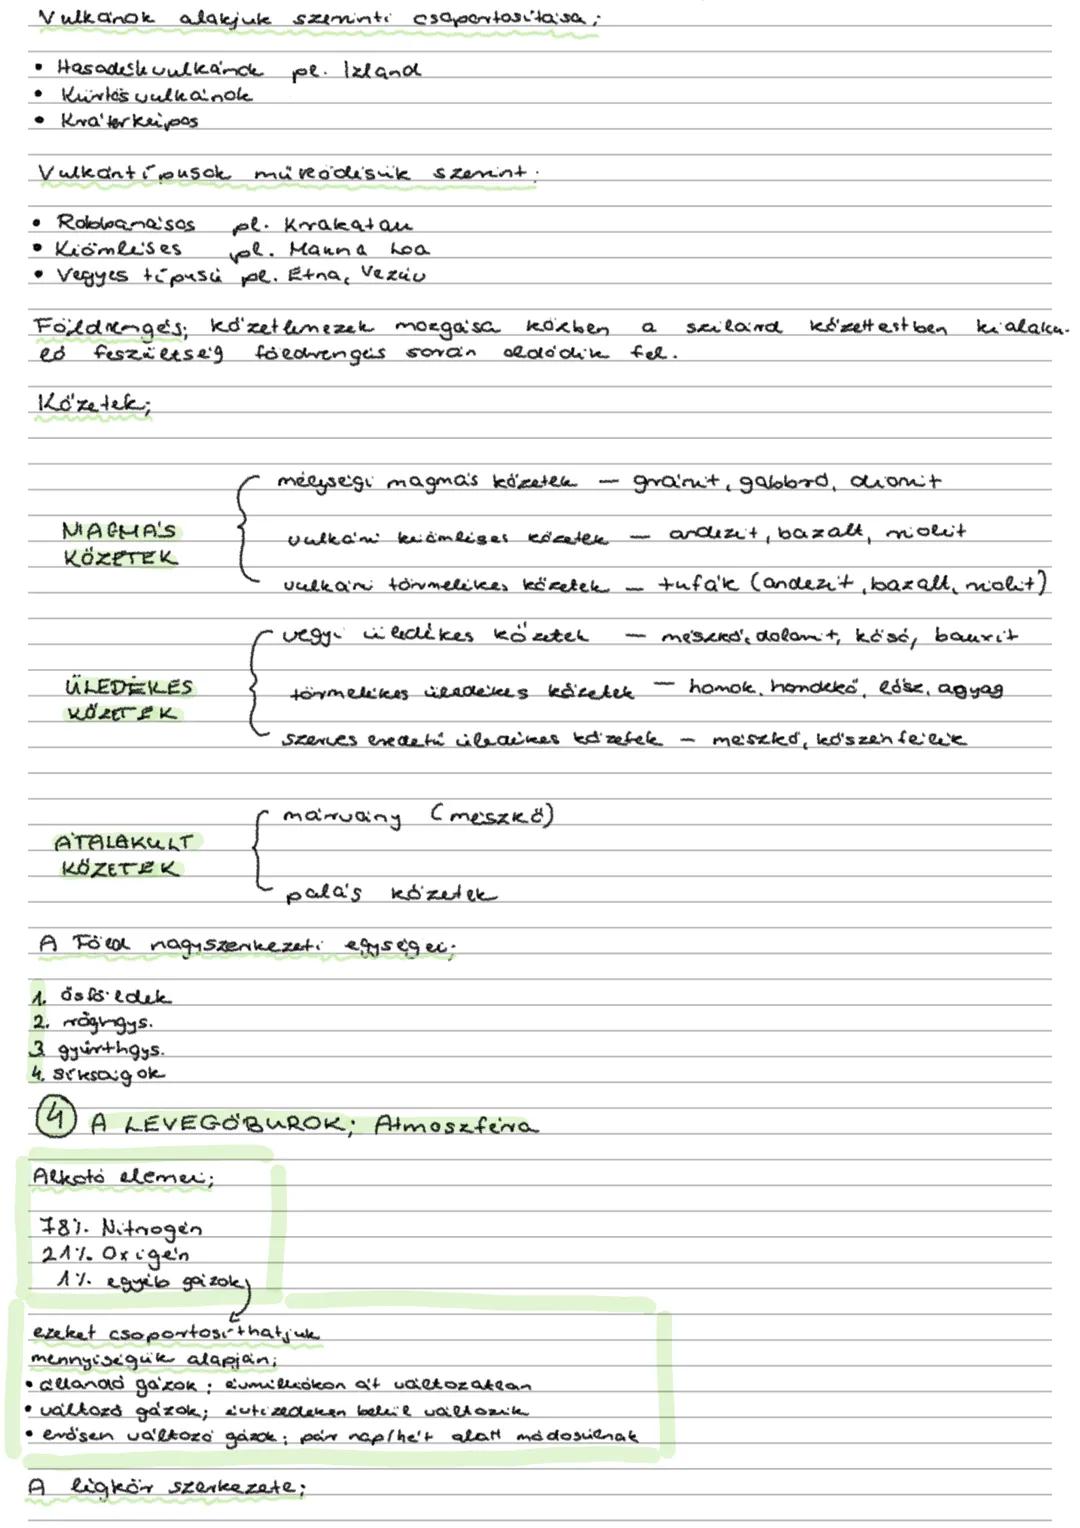 Vulkánok alakjuk szerinti csoportosítása;
• Hasadékvulkánok pl. Izland
• Kürtős vulkánok
• Kráterképos
Vulkántípusok működésük szerint:
• Robbanásos pl. Krakatau
• Kiömléses pl. Mauna Loa
• Vegyes típusú pl. Etna, Vezúv
Földrengés; kőzetlemezek mozgása közben a szilárd kőzettestben kialaku-
ló feszültség földrengés során oldódik fel.
Kőzetek;
mélységi magmás kőzetek – gránit, gabbró, diorit
MAGMÁS vulkáni kiömléses kőzetek – andezit, bazalt, riolit
KŐZETEK
vulkáni törmelékes kőzetek – tufák (andezit, bazalt, riolit)
vegyi üledékes kőzetek – mészkő, dolomit, kősó, bauxit
ÜLEDÉKES törmelékes üledékes kőzetek – homok, homokkő, lösz, agyag
KŐZETEK
szerves eredetű üledékes kőzetek – mészkő, kőszénfélék
márvány (mészkő)
ÁTALAKULT
KŐZETEK
palás kőzetek
A Föld nagyszerkezeti egységei;
1. ősföldek
2. röghgys.
3. gyűrthgys.
4. síkságok
4 A LEVEGŐBUROK; Atmoszféra
Alkotó elemei;
78% Nitrogén
21% Oxigén
1% egyéb gázok
ezeket csoportosíthatjuk
mennyiségük alapján;
• állandó gázok; évmilliókon át változatlan
• változó gázok; évtizedeken belül változik
• erősen változó gázok; pár nap/hét alatt módosulnak
A légkör szerkezete;